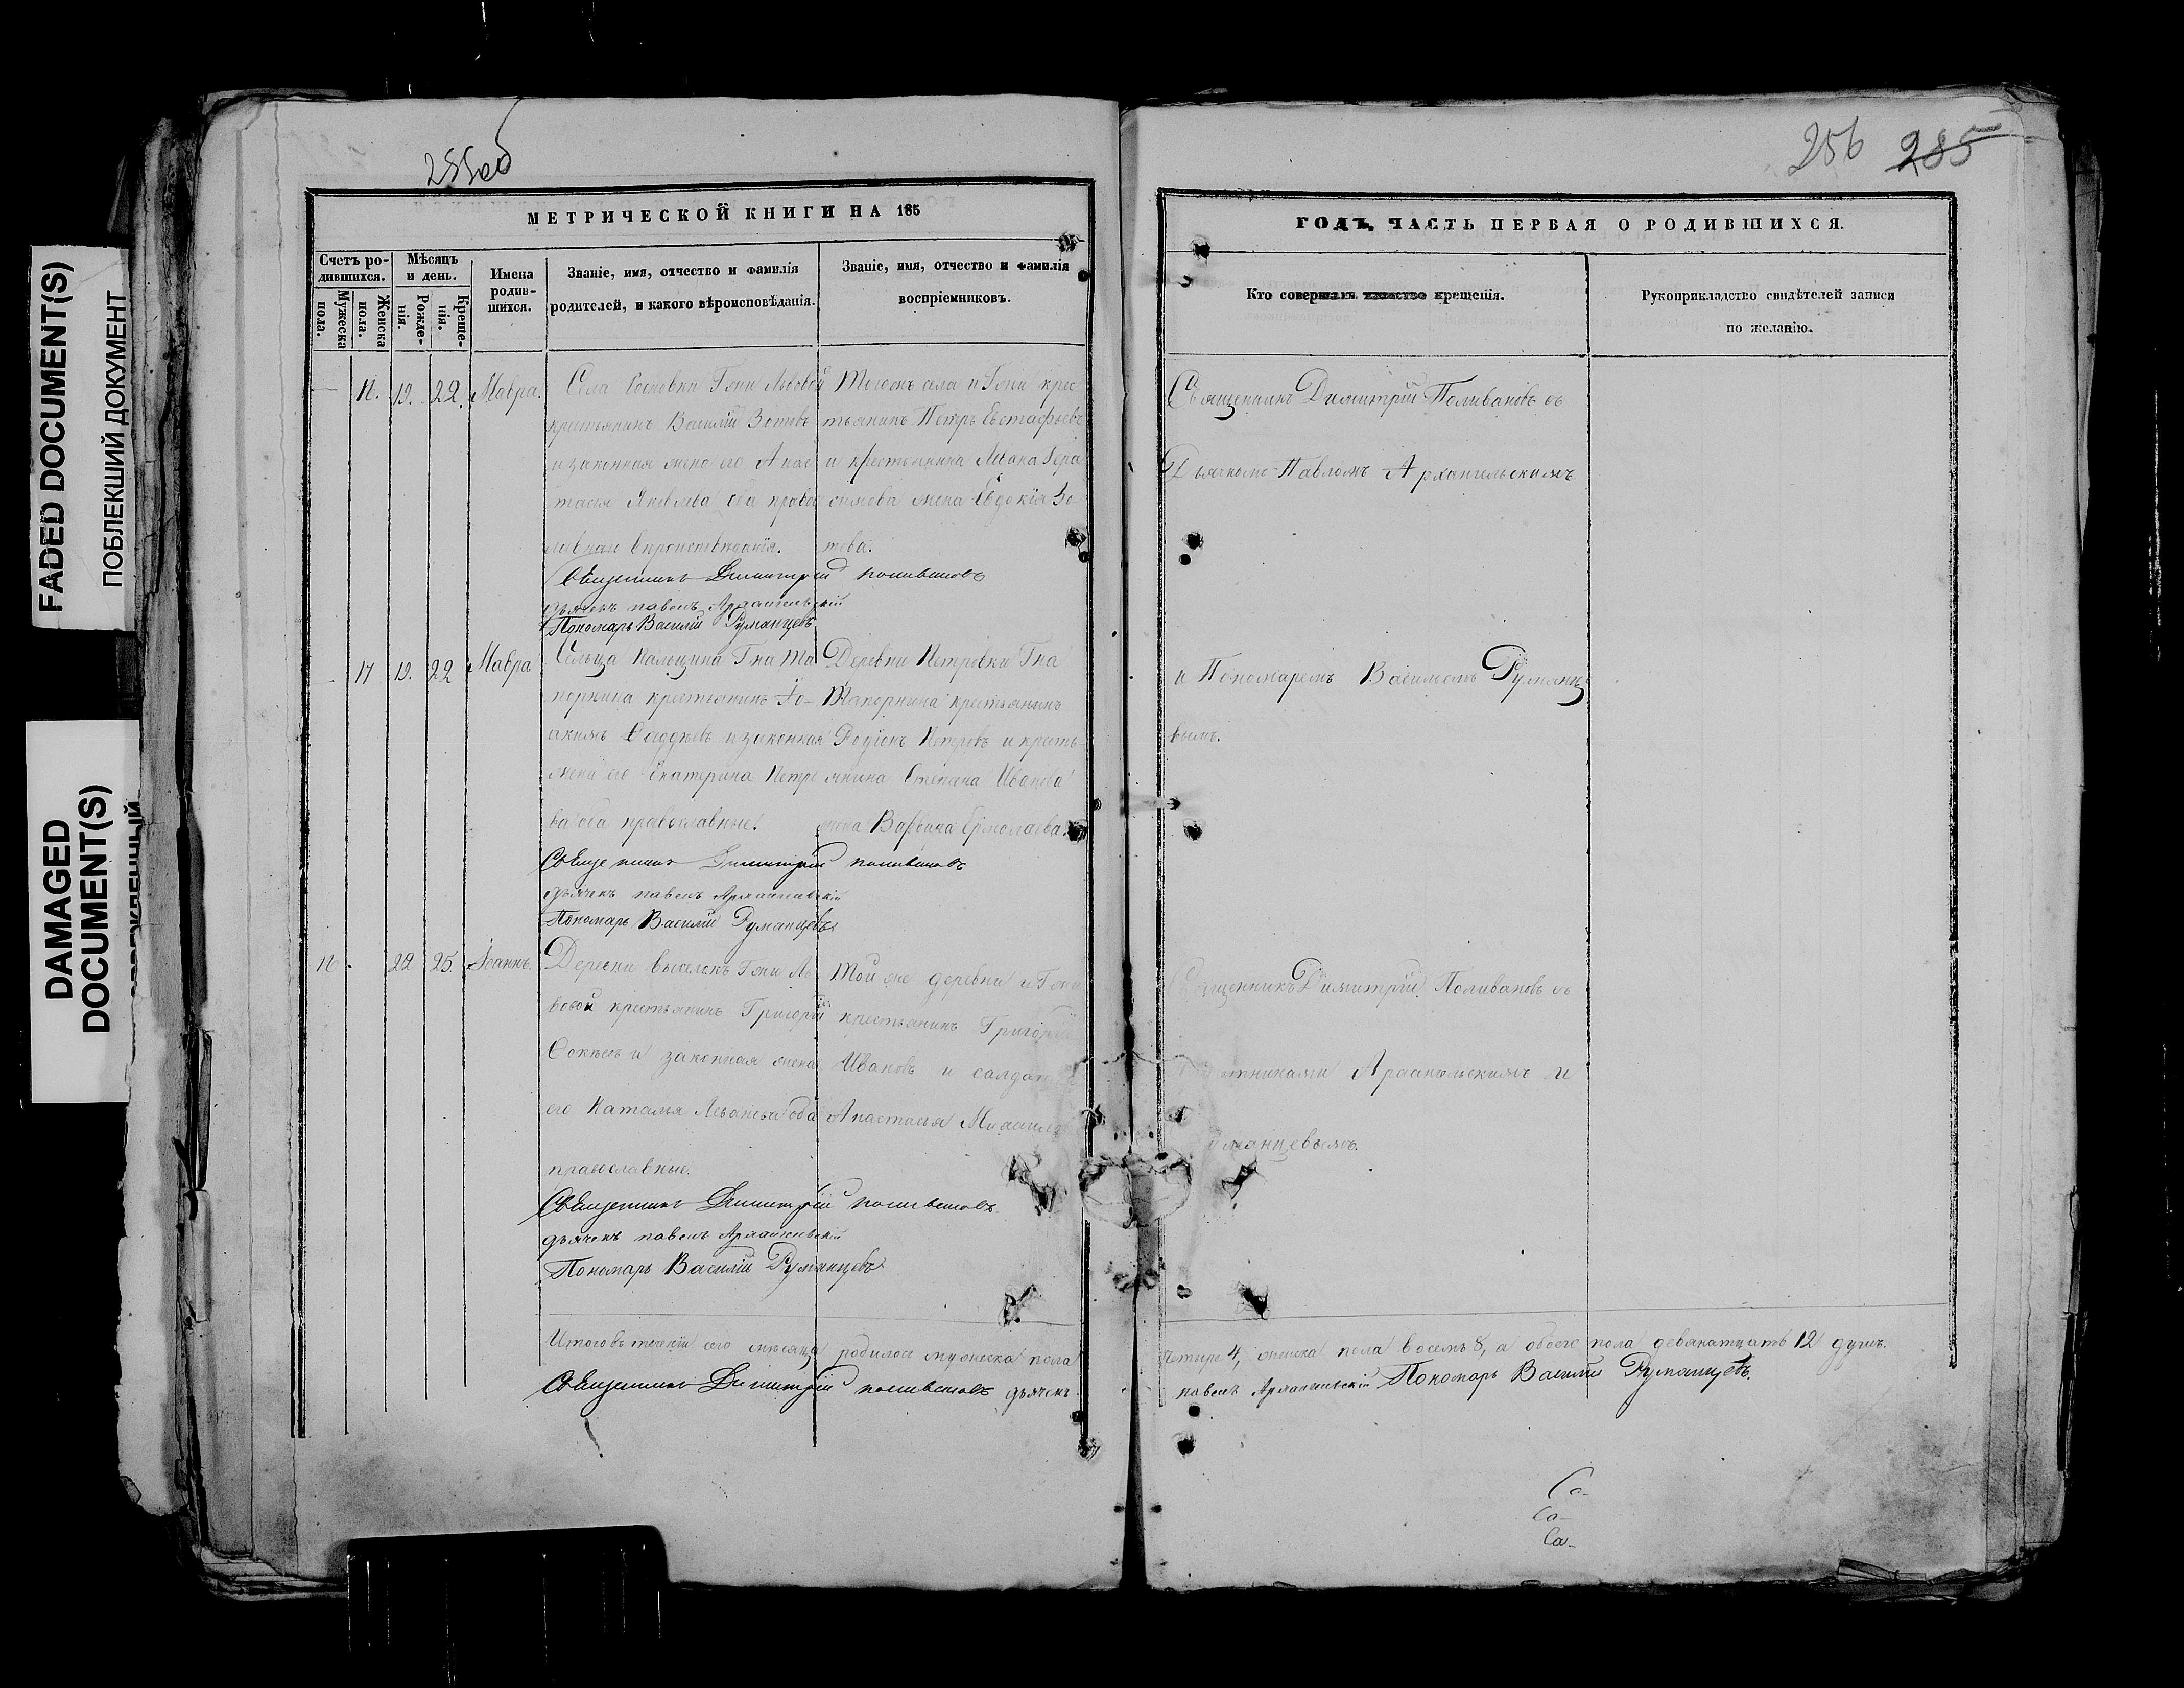 FADED DOCUMENT(S)
ПОБЛЕКШИЙ ДОКУМЕНТ
DAMAGED
DOCUMENT(S)
255об
МЕТРИЧЕСКОЙ КНИГИ НА 185
Счетъ ро-
дившихся.
Мужеска
пола.
Женска
пола.
Мѣсяцъ
и день.
Рожде-
нія.
Креще-
нія.
Имена
родив-
шихся.
Званіе, имя, отчество и фамилія
родителей, и какого вѣроисповѣданія.
Званіе, имя, отчество и фамилія
воспріемниковъ.
19. 22. Мавра.
Села Гжи Львовой
крестьянинъ Василій Зотовъ
и законная жена его Анас
тасія Яковлева оба право
славнаго вѣроисповѣданія.
Тогожъ села и Гжи крес
тьянинъ Петръ Евстафьевъ
и крестьянина Ивана Гера
симова жена Евдокія Зо
това.
Священникъ Димитрій Поливановъ
дьячекъ павелъ Архангельскій
Пономарь Василій Румянцевъ
17 19. 22 Мавра
Сельца Гна Та
поркина крестьянинъ Іо-
акимъ Фаддѣевъ и законная
жена его Екатерина Петро
ва оба православные.
Деревни Петровки Гна
Тапоркина крестьянинъ
Родіонъ Петровъ и кресть
янина Степана Иванова
жена Варвара Ермолаева.
Священникъ Димитрій поливановъ
дьячекъ павелъ Архангельскій
Пономарь Василій Румянцевъ
22 25. Іоаннъ.
Деревни Выселокъ Гжи Ль
вовой крестьянинъ Григорій
и законная жена
его Наталья оба
православные.
Той же деревни и Гжи
крестьянинъ Григорій
Ивановъ и солдатка
Анастасія
Священникъ Димитрій поливановъ
дьячекъ павелъ Архангельскій
Пономарь Василій Румянцевъ
Итого въ теченіи сего мѣсяца родилось мужеска пола
Священникъ Димитрій поливановъ дьячекъ
256 285
ГОДЪ, ЧАСТЬ ПЕРВАЯ О РОДИВШИХСЯ.
Кто совершалъ таинство крещенія.
Рукоприкладство свидѣтелей записи
по желанію.
Священникъ Димитрій Поливановъ съ
Дьячкомъ Павломъ Архангельскимъ
и Пономаремъ Васильемъ Румянце
вымъ.
Священникъ Димитрій Поливановъ съ
Архангельскимъ и
Румянцевымъ.
четыре 4, женска пола восемь 8, а обоего пола двенатцать 12 душъ.
павелъ Архангельскій Пономарь Василій Румянцевъ.
Со-
Со-
Со-